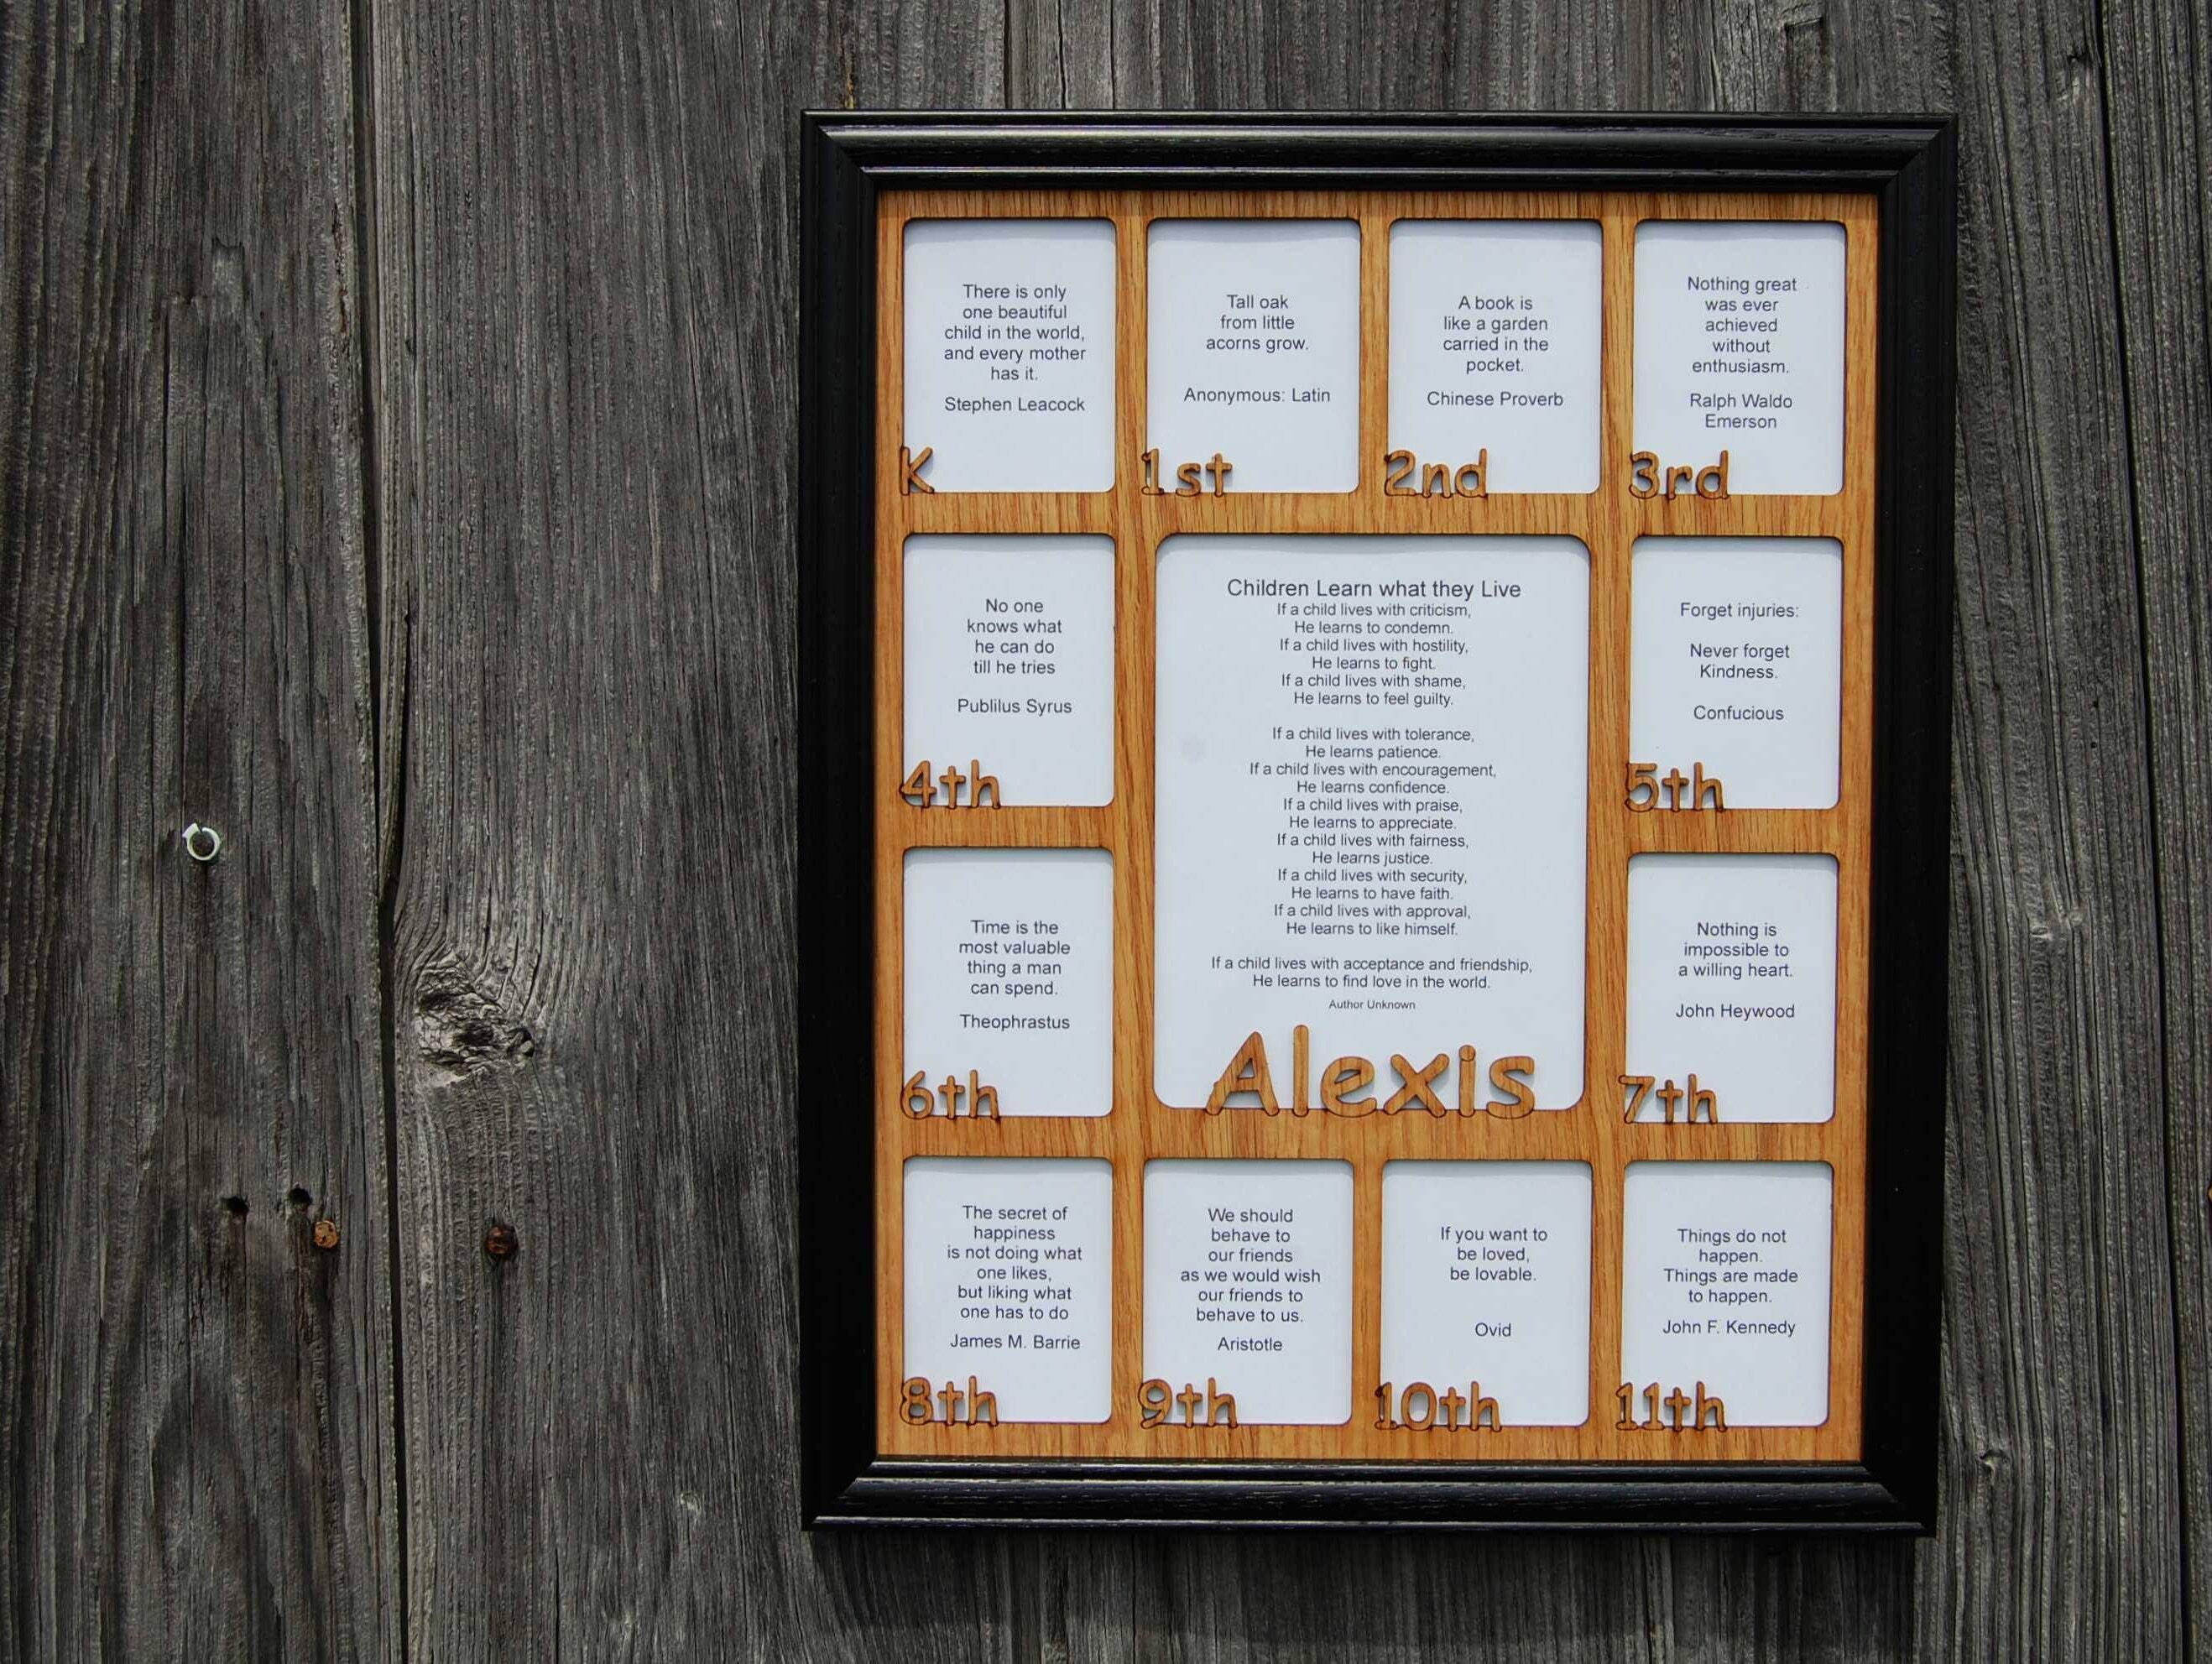 There is only
one beautiful
child in the world,
and every mother
has it.
Stephen Leacock
K
Tall oak
from little
acorns grow.
Anonymous: Latin
1st
A book is
like a garden
carried in the
pocket.
Chinese Proverb
2nd
Nothing great
was ever
achieved
without
enthusiasm.
Ralph Waldo
Emerson
3rd
No one
knows what
he can do
till he tries
Publilus Syrus
4th
Children Learn what they Live
If a child lives with criticism,
He learns to condemn.
If a child lives with hostility,
He learns to fight.
If a child lives with shame,
He learns to feel guilty.
If a child lives with tolerance,
He learns patience.
If a child lives with encouragement,
He learns confidence.
If a child lives with praise,
He learns to appreciate.
If a child lives with fairness,
He learns justice.
If a child lives with security,
He learns to have faith.
If a child lives with approval,
He learns to like himself.
If a child lives with acceptance and friendship,
He learns to find love in the world.
Author Unknown
Alexis
Forget injuries:
Never forget
Kindness.
Confucious
5th
Time is the
most valuable
thing a man
can spend.
Theophrastus
6th
Nothing is
impossible to
a willing heart.
John Heywood
7th
The secret of
happiness
is not doing what
one likes,
but liking what
one has to do
James M. Barrie
8th
We should
behave to
our friends
as we would wish
our friends to
behave to us.
Aristotle
9th
If you want to
be loved,
be lovable.
Ovid
10th
Things do not
happen.
Things are made
to happen.
John F. Kennedy
11th